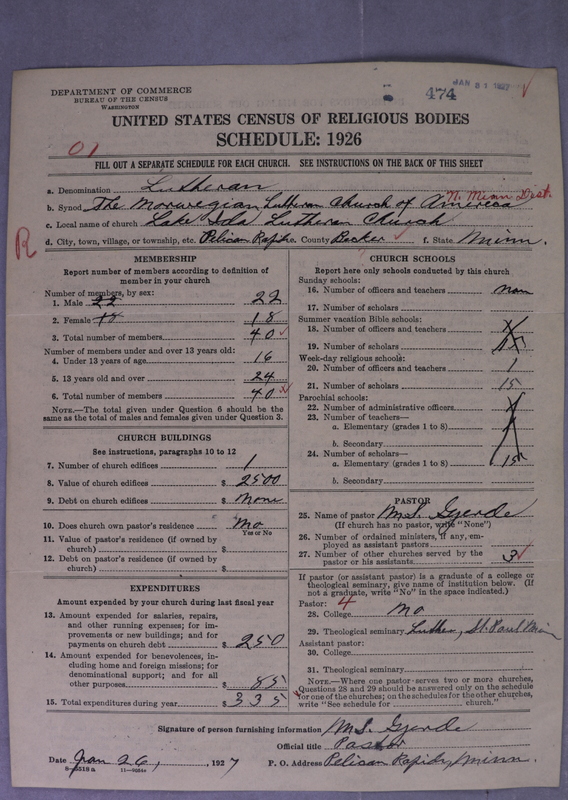 DEPARTMENT OF COMMERCE
BUREAU OF THE CENSUS
WASHINGTON
474
JAN 31 1927
UNITED STATES CENSUS OF RELIGIOUS BODIES
SCHEDULE: 1926
01
FILL OUT A SEPARATE SCHEDULE FOR EACH CHURCH. SEE INSTRUCTIONS ON THE BACK OF THIS SHEET
a. Denomination Lutheran
b. Synod The Norwegian Lutheran Church of America N. Minn Dist.
c. Local name of church Lake Ida Lutheran Church
R
d. City, town, village, or township, etc. Pelican Rapids e. County Becker f. State Minn.
MEMBERSHIP
Report number of members according to definition of
member in your church
Number of members, by sex:
1. Male 22 22
2. Female 18 18
3. Total number of members 40
Number of members under and over 13 years old:
4. Under 13 years of age 16
5. 13 years old and over 24
6. Total number of members 40
NOTE.—The total given under Question 6 should be the
same as the total of males and females given under Question 3.
CHURCH BUILDINGS
See instructions, paragraphs 10 to 12
7. Number of church edifices 1
8. Value of church edifices $ 2500
9. Debt on church edifices $ None
10. Does church own pastor's residence No
Yes or No
11. Value of pastor's residence (if owned by
church) $
12. Debt on pastor's residence (if owned by
church) $
EXPENDITURES
Amount expended by your church during last fiscal year
13. Amount expended for salaries, repairs,
and other running expenses; for im-
provements or new buildings; and for
payments on church debt $ 250
14. Amount expended for benevolences, in-
cluding home and foreign missions; for
denominational support; and for all
other purposes $ 85
15. Total expenditures during year $ 335
CHURCH SCHOOLS
Report here only schools conducted by this church
Sunday schools:
16. Number of officers and teachers non
17. Number of scholars
Summer vacation Bible schools:
18. Number of officers and teachers
19. Number of scholars 15
Week-day religious schools:
20. Number of officers and teachers 1
21. Number of scholars 15
Parochial schools:
22. Number of administrative officers
23. Number of teachers—
a. Elementary (grades 1 to 8)
b. Secondary
24. Number of scholars—
a. Elementary (grades 1 to 8) 15
b. Secondary
PASTOR
25. Name of pastor M.S. Gjerde
(If church has no pastor, write "None")
26. Number of ordained ministers, if any, em-
ployed as assistant pastors
27. Number of other churches served by the
pastor or his assistants 3
If pastor (or assistant pastor) is a graduate of a college or
theological seminary, give name of institution below. (If
not a graduate, write "No" in the space indicated.)
Pastor: 4
28. College No
29. Theological seminary Luther, St. Paul Minn
Assistant pastor:
30. College
31. Theological seminary
NOTE.—Where one pastor serves two or more churches,
Questions 28 and 29 should be answered only on the schedule
for one of the churches; on the schedules for the other churches,
write "See schedule for church."
Signature of person furnishing information M.S. Gjerde
Official title Pastor
Date Jan 26, 1927 P. O. Address Pelican Rapids, Minn.